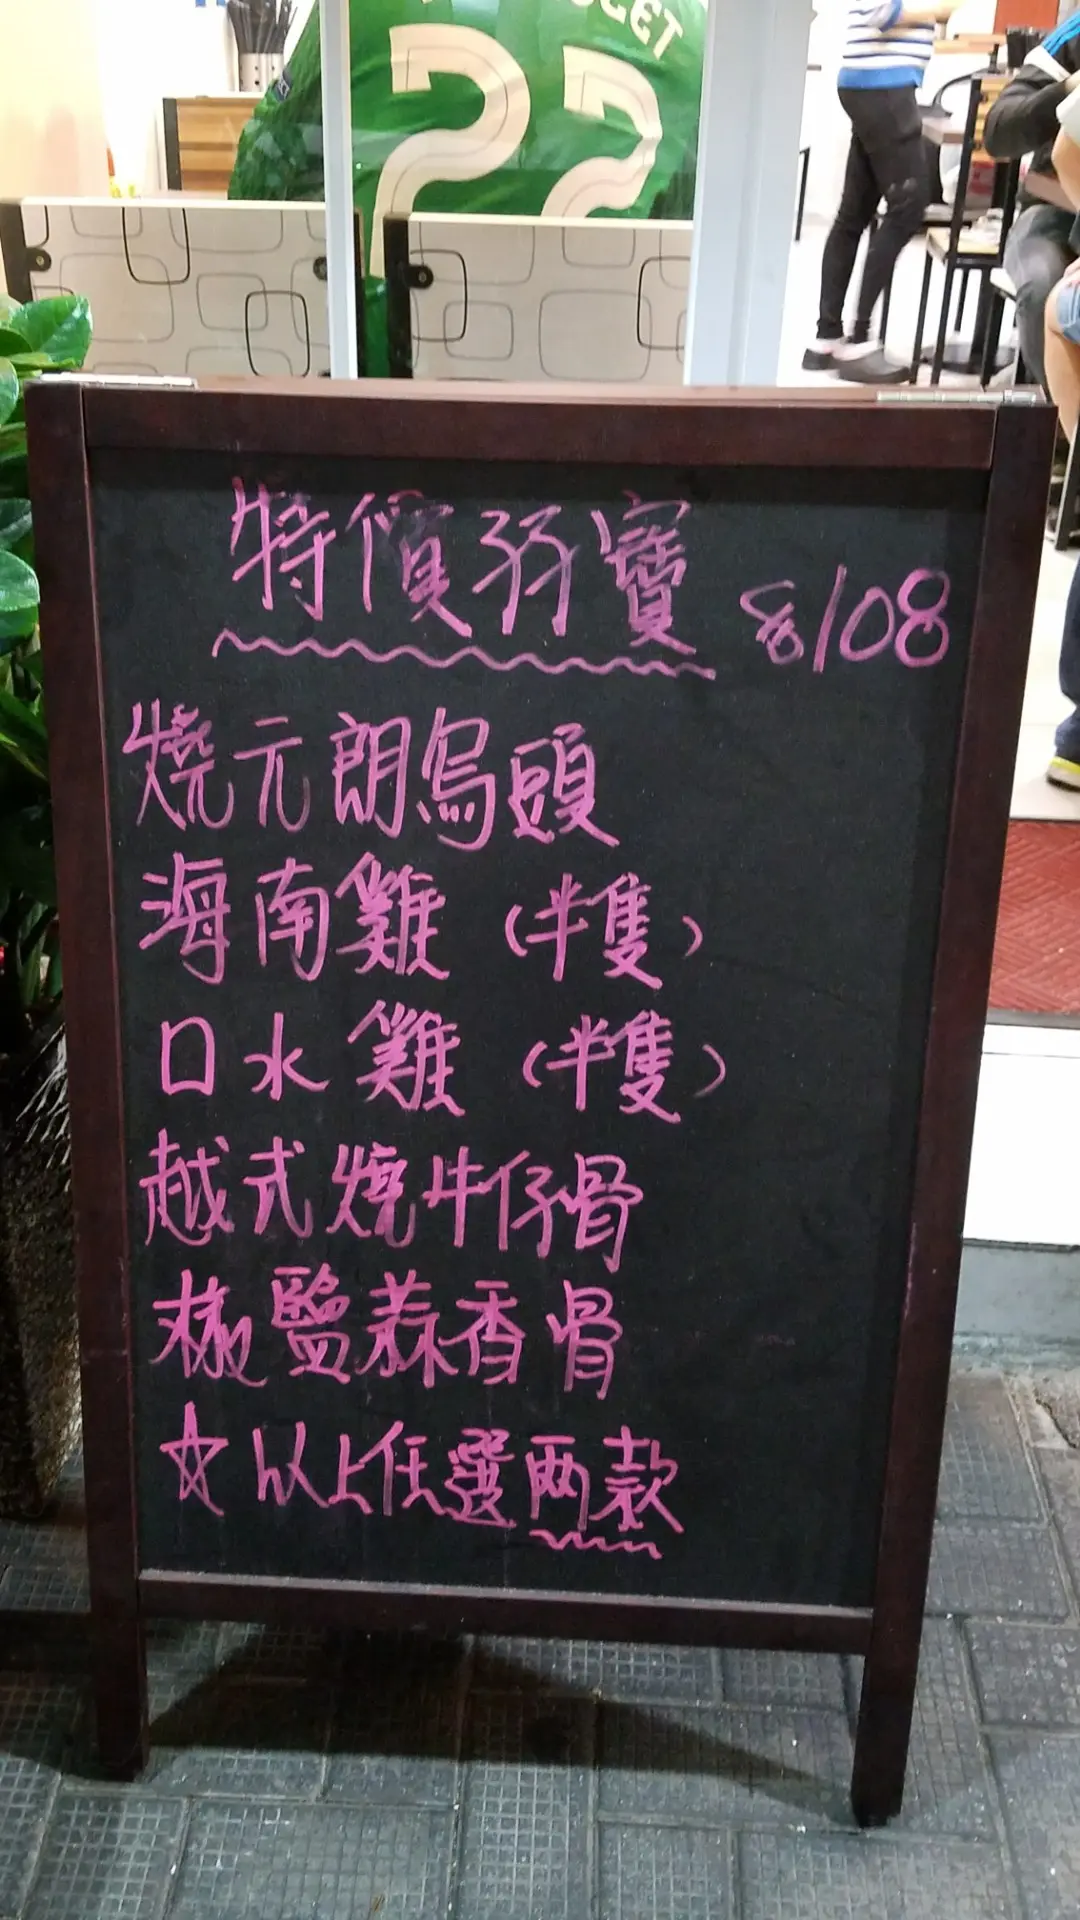 22
特價孖寶 $108
燒元朗烏頭
海南雞（半隻）
口水雞（半隻）
越式燒牛仔骨
椒鹽蒜香骨
☆以上任選两款